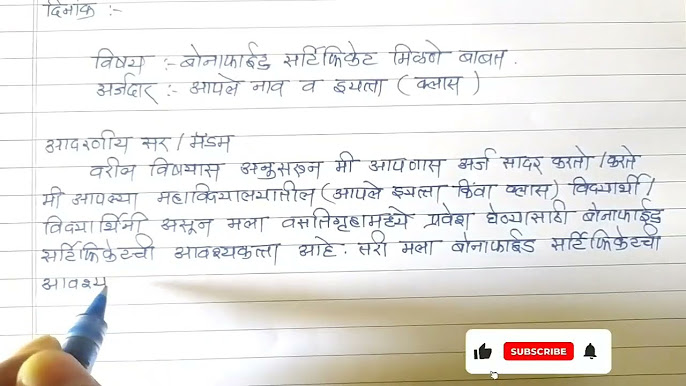 दिनांक :-
विषय :- बोनाफाईड सर्टिफिकेट मिळणे बाबत.
अर्जदार :- आपले नाव व इयत्ता ( क्लास )
आदरणीय सर / मॅडम
वरील विषयास अनुसरून मी आपणास अर्ज सादर करतो / करते
मी आपल्या महाविद्यालयातील (आपले इयत्ता किंवा क्लास) विद्यार्थी /
विद्यार्थिनी असून मला वसतिगृहामध्ये प्रवेश घेण्यासाठी बोनाफाईड
सर्टिफिकेटची आवश्यकत्ता आहे. तरी मला बोनाफाईड सर्टिफिकेटची
आवश्य
SUBSCRIBE